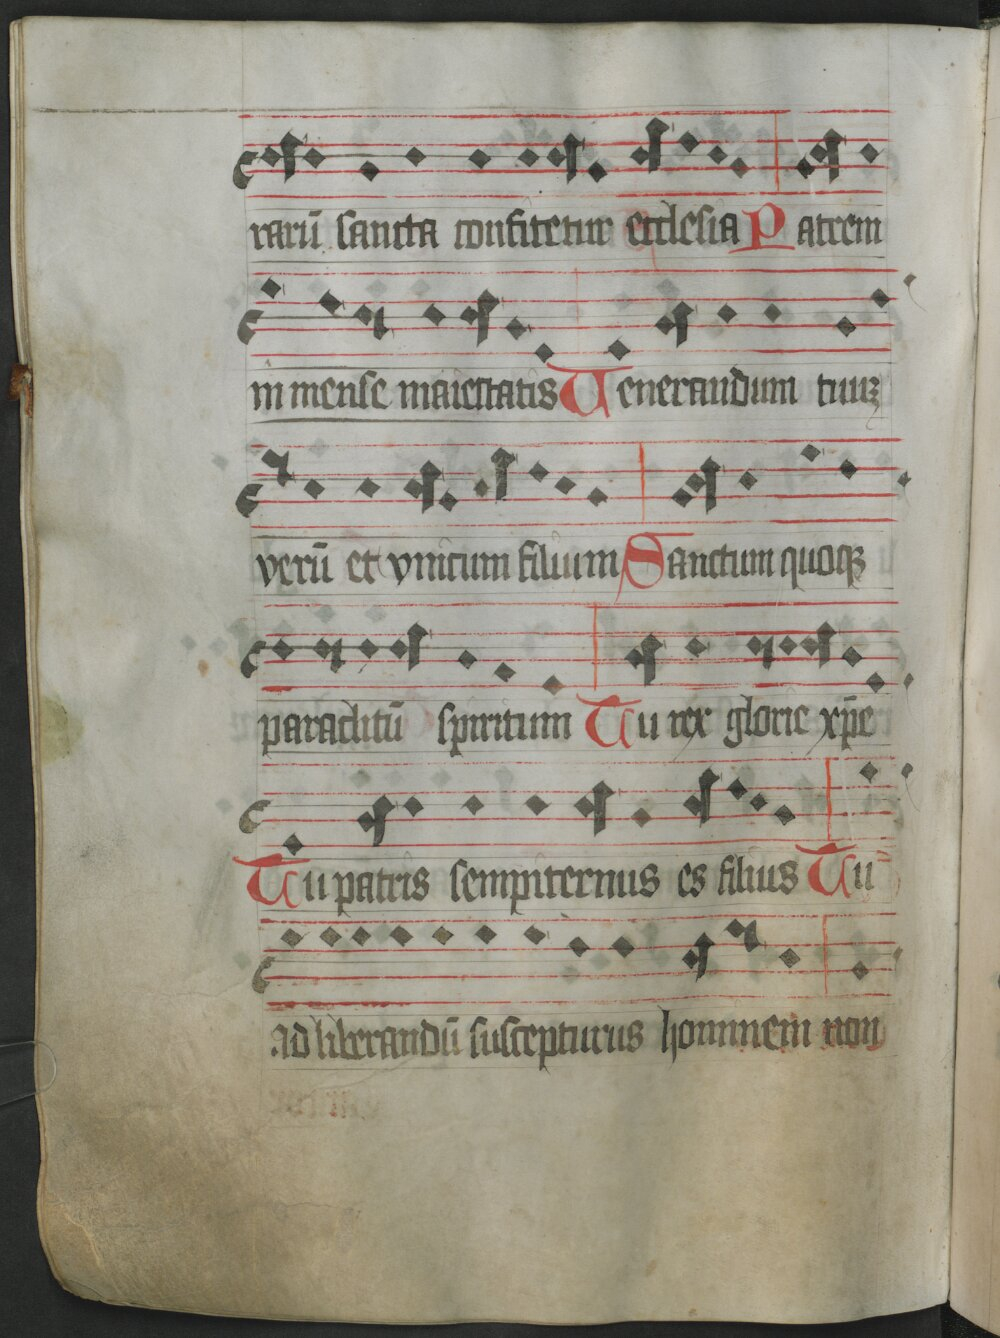 rarū sancta confitetur ecclesia Patrem
inmense maiestatis Uenerandum tuuȝ
verū et vnicum filium Sanctum quoqȝ
paraclitū spiritum Tu rex glorie xp̄e
Tu patris sempiternus es filius Tu
ad liberandū suscepturus hominem non